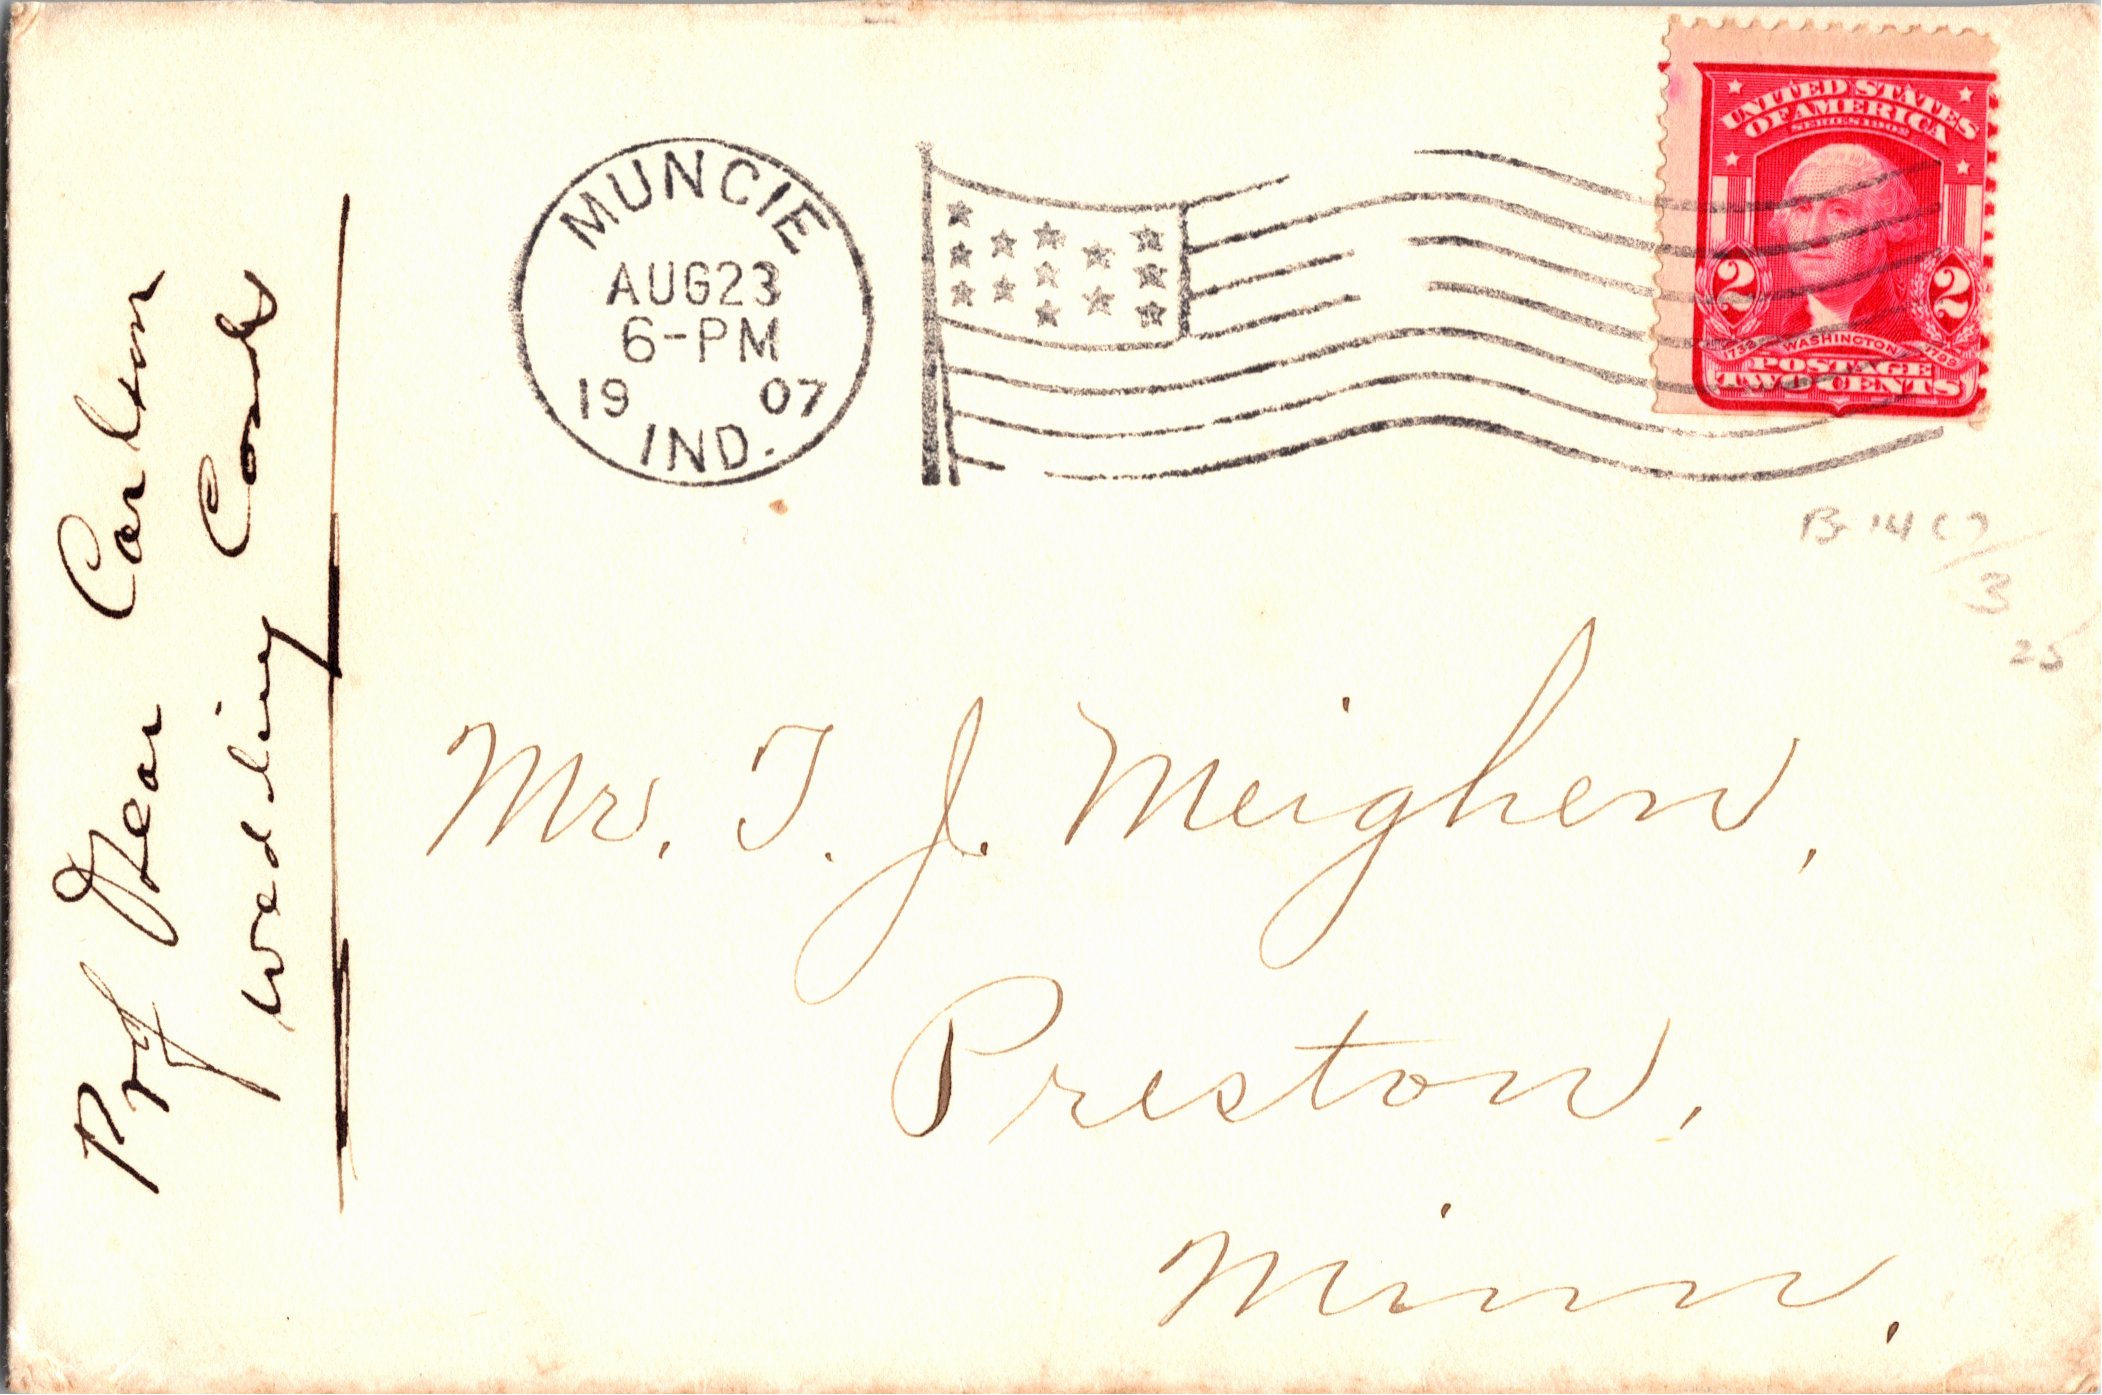 MUNCIE
AUG 23
6-PM
19 07
IND.
UNITED STATES
OF AMERICA
SERIES 1902
2 2
1732 WASHINGTON 1799
POSTAGE
TWO CENTS
B 14 (7)
3
25
Prof Dean Carlton
Wedding Cards
Mr. T. J. Meighen,
Preston,
Minn.